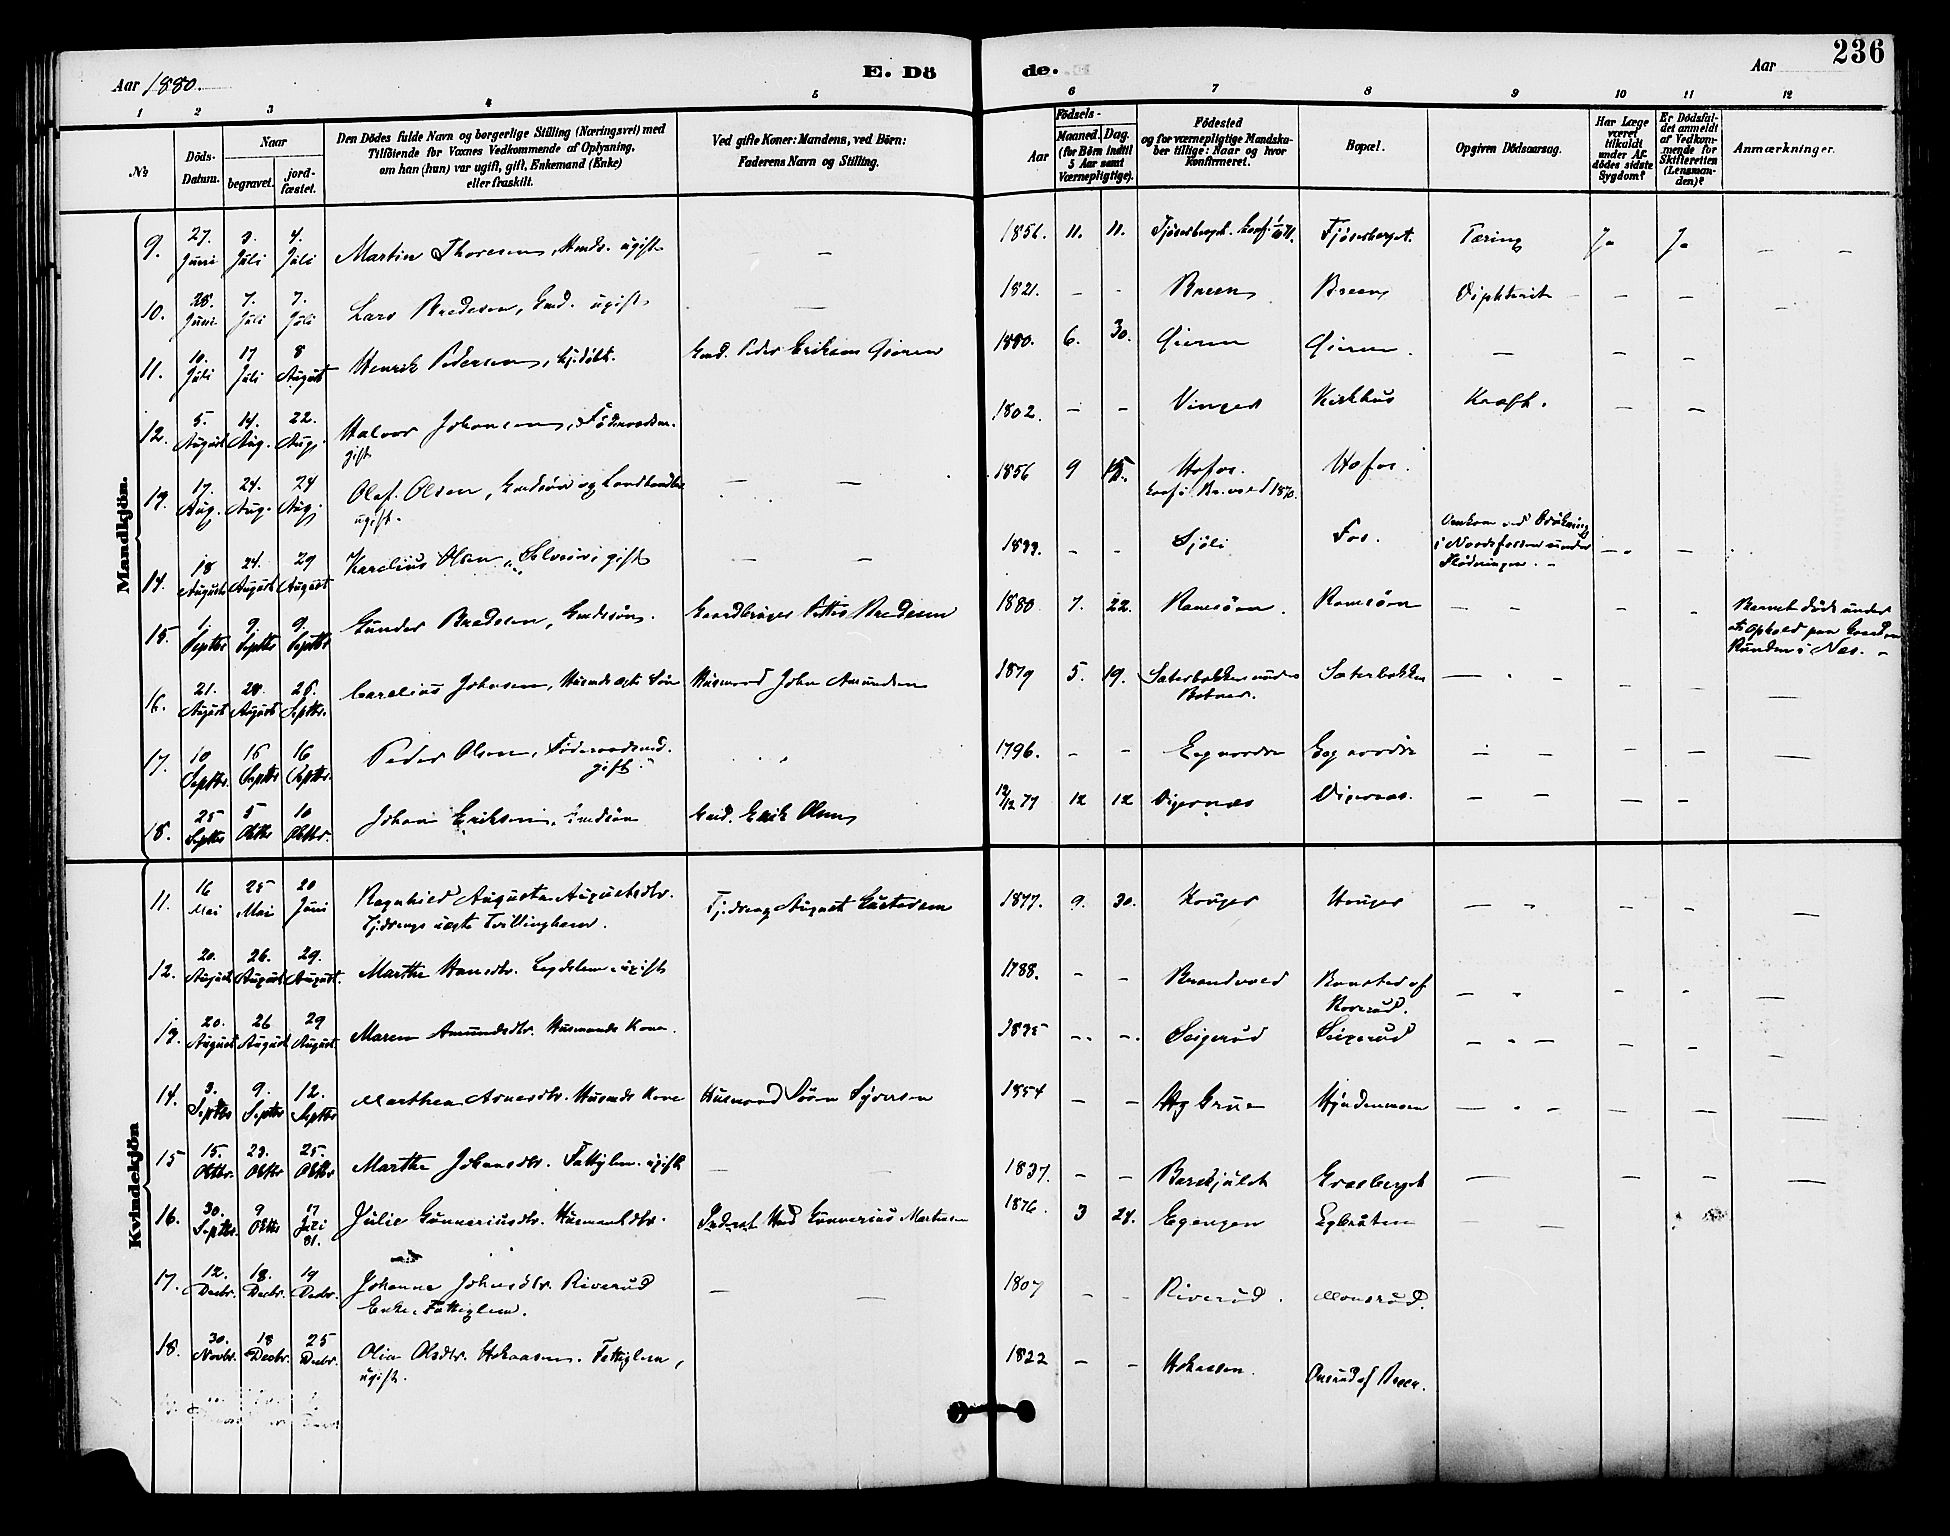 Aar 1880.
E. Döde.
Aar
236
1 2 3 4 5 6 7 8 9 10 11 12
№
Döds-Datum.
Naar
begravet.
jord-fæstet.
Den Dödes fulde Navn og borgerlige Stilling (Næringsvei) med
Tilföiende for Voxnes Vedkommende af Oplysning,
om han (hun) var ugift, gift, Enkemand (Enke)
eller fraskilt.
Ved gifte Koner: Mandens, ved Börn:
Faderens Navn og Stilling.
Födsels-
Aar
Maaned. Dag.
(for Börn indtil
5 Aar samt
Værnepligtige).
Födested
og for værnepligtige Mandska-
ber tillige: Naar og hvor
konfirmeret.
Bopæl.
Opgiven Dödsaarsag.
Har Læge
været
tilkaldt
under Af-
dödes sidste
Sygdom?
Er Dödsfal-
det anmeldt
af Vedkom-
mende for
Skifteretten
(Lensman-
den)?
Anmærkninger.
Mandkjön.
9. 27. Juni 3. Juli 4. Juli Martin Thoresen, ugift — — 1856. 11. 11. Fjöserberget. Tæring Ja Ja — —
10. 28. Juni 7. Juli 7. Juli Lars Bredesen, Gmd. ugift — 1821. — — Breen Breen Diphterit — — —
11. 10. Juli 17 Juli 8 August Henrik Pedersen, Gmd. Peder Eriksen Gieren 1880. 6. 30. Gieren Gieren. — — —
12. 5. August 14. Aug. 22. Aug. Halvor Johansen, Föderaadsm.
gift
1802. — — Vinger Kirkhus Kræft. — —
13. 17. Aug. 24. Aug. 24 Aug. Olaf Olsen, Gmdsön og Landhandler
ugift.
— — 1856 9 15. Hofos.
Konf. i Br.vold 1870.
Hofos.
14. 18 August 24. August 29 August Karelius Olsen, Selveier, gift — — 1833. — — Sjöli Fos. Omkom ved Drukning
i Noresfossen under
Flödningen. — —
15. 1. Septbr 9. Septbr 9. Septbr Gunder Bredesen, Gmdssön. Gaardbruger Petter Bredesen 1880 7. 22. Ramsöen. Ramsöen — — — — Barnet döde under
et Ophold paa Gaarden
Runden i Næs.
16. 21. August 28. August 26. Septbr. Carelius Johnsen, Husmds ægte Sön Husmand John Amundsen 1879 5. 19. Sæterbakken under
Botner.
Sæterbakken — — — — —
17. 10 Septbr. 16 Septbr. 16 Septbr. Peder Olsen, Föderaadsmd.
gift.
1796. — — Eg nordre Eg nordre — — — — —
18. 25 Septbr 5 Oktbr 10 Oktbr. Johan Eriksen, Gmdsön Gmd. Erik Olsen 12/12 79 12 12 Digernæs Digernæs. — — — —
Kvindekjön
11. 16 Mai 25 Mai 20 Juni Ragnhild Augusta Augustsdtr.
Tjdrengs ægte Tvillingbarn.
Tjdreng August Gustavsen 1877. 9. 30. Houger Houger — — — —
12. 20. August 26. August 29. August. Marthe Hansdtr. Legdslem. ugift 1788. — — Brandvold Baastad af
Roverud.
— — — —
13. 20. August 26 August 29 August Maren Amundsdtr. Husmands Kone. 1835 — — Seigerud Seigerud — — — — —
14. 3. Septbr 9. Septbr 12. Septbr Marthea Arnesdtr. Husmds Kone Husmand Sören Syversen 1854 — — Hg Grue — — — — —
15 15. Oktbr. 23. Oktbr 25. Oktbr Marthe Johansdtr. Fattiglem. ugift — — 1837. — — Grasberget — — — —
16. 30. Septbr. 9 Oktbr 17 Juli
81.
Julie Gunneriusdtr. Husmandsdtr. Gunnerius Martinsen 1876. 3 24. Egengen Egbråten — —
17. 12. Decbr. 18. Decbr. 19 Decbr. Johanne Johnsdtr. Riverud
Enke. Fattiglem.
— — 1807 — — Riverud. Monsrud.
18. 30. Novbr. 18 Decbr. 25 Decbr. Olia Olsdtr. Hokaasen. Fattiglem,
ugift.
1822 — — Hokaasen. Onsrud af Breen.